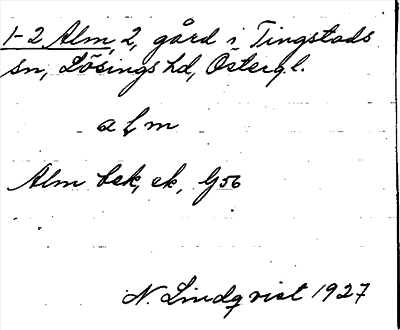 1-2 Alm, 2, gård i Tingstads
sn, Lösings hd, Östergl.
alm
Alm bek, ek, G56
N. Lindqvist 1927